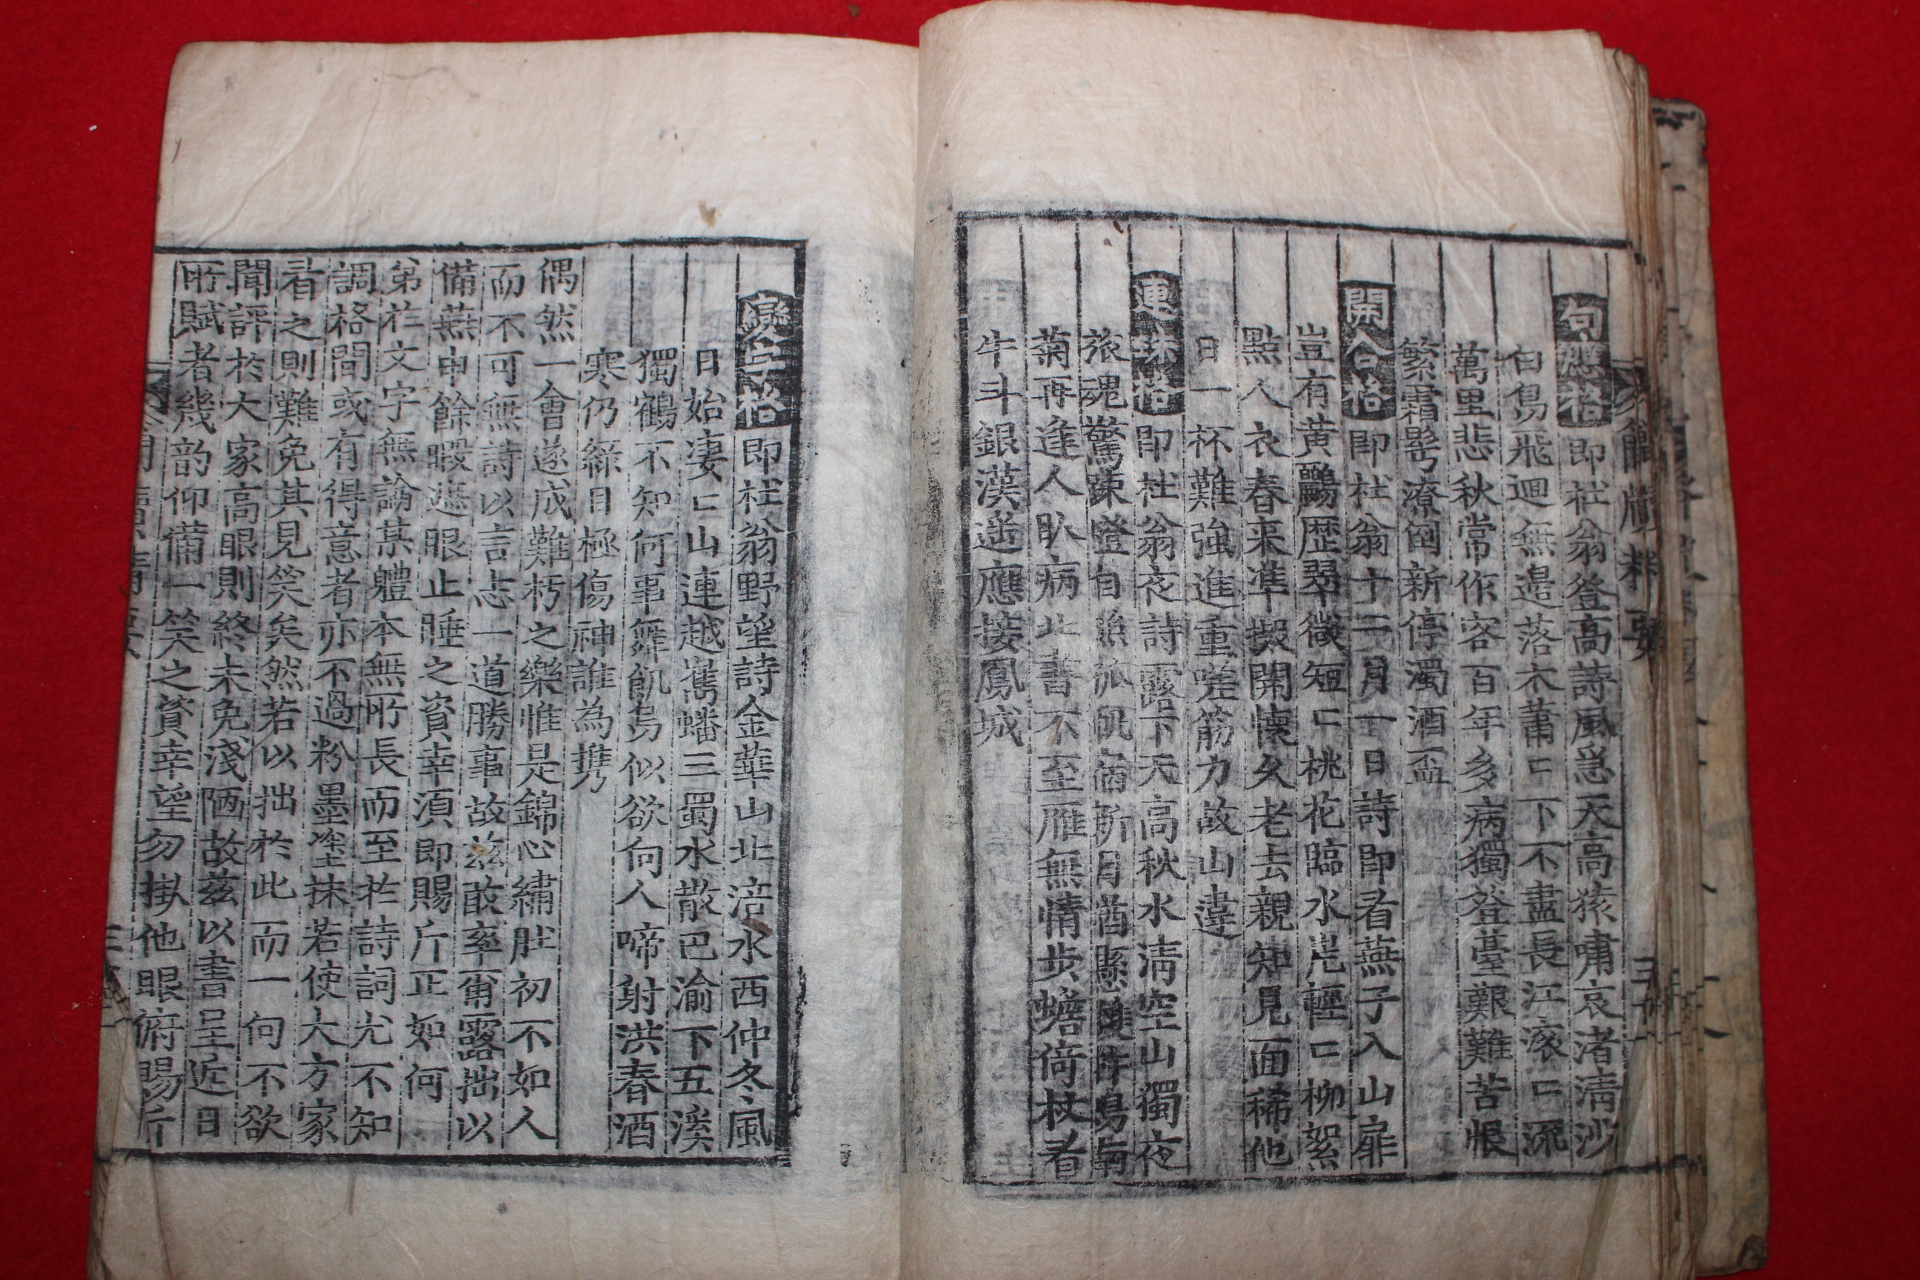 句應格即杜翁登高詩風急天高猿嘯哀渚淸沙
白鳥飛迴無邉落木蕭〻下不盡長江滚〻流
萬里悲秋常作客百年多病獨登臺艱難苦恨
繁霜髩潦倒新停濁酒盃
開合格即杜翁十二月一日詩即看燕子入山扉
豈有黄鸝歷翠微短〻桃花臨水岸輕〻柳絮
點人衣春来准擬開懷久老去親知見面稀他
日一杯難強進重嗟筋力故山違
連珠格即杜翁夜詩露下天高秋水淸空山獨夜
旅魂驚踈燈自照孤帆宿新月猶懸雙杵鳴南
菊再逢人卧病北書不至雁無情步蟾倚杖看
牛斗銀漢遥應接鳳城
即杜翁野望詩金華山北涪水西仲冬風
日始凄〻山連越嶲蟠三蜀水散巴渝下五溪
獨鶴不知何事舞飢烏似欲向人啼射洪春酒
寒仍綠目極傷神誰為携
偶然一會遂成難朽之樂惟是錦心繡肚初不如人
而不可無詩以言志一道勝事故兹敢率甭露拙以
備蕪中餘暇遮眼止睡之資幸湏即賜斤正如何
第於文字無論某體本無所長而至於詩詞尤不知
調格間或有得意者亦不過粉墨塗抹若使大方家
看之則難免其見笑矣然若以拙於此而一向不欲
聞評於大家高眼則終未免淺陋故兹以書呈近日
所賦者幾韵仰備一笑之資幸望勿掛他眼俯賜斤